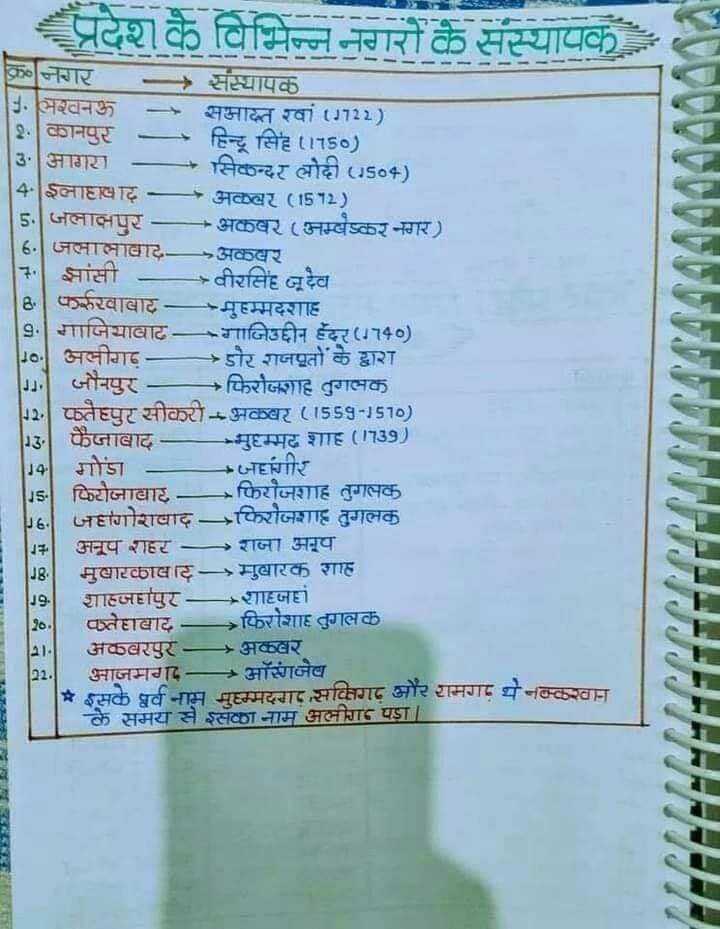 प्रदेश के विभिन्न नगरों के संस्थापक
क्र० नगर → संस्थापक
1. लखनऊ → सआदत खां (1722)
2. कानपुर → हिन्दू सिंह (1750)
3. आगरा → सिकन्दर लोदी (1504)
4. इलाहाबाद → अकबर (1572)
5. जलालपुर → अकबर (अम्बेडकर नगर)
6. जलालाबाद → अकबर
7. झांसी → वीरसिंह जूदेव
8. फर्रुखाबाद → मुहम्मदशाह
9. गाजियाबाद → गाजिउद्दीन हैदर (1740)
10. अलीगढ़ → डोर राजपूतों के द्वारा
11. जौनपुर → फिरोजशाह तुगलक
12. फतेहपुर सीकरी → अकबर (1559-1570)
13. फैजाबाद → मुहम्मद शाह (1739)
14 गोंडा → जहांगीर
15. फिरोजाबाद → फिरोजशाह तुगलक
16. जहांगीराबाद → फिरोजशाह तुगलक
17 अनूप शहर → राजा अनूप
18. मुबारकाबाद → मुबारक शाह
19. शाहजहांपुर → शाहजहां
20. फतेहाबाद → फिरोशाह तुगलक
21. अकबरपुर → अकबर
22. आजमगढ़ → औरंगजेब
* इसके पूर्व नाम मुहम्मदगढ़, सब्तिगढ़ और रामगढ़ थे
के समय से इसका नाम अलीगढ़ पड़ा।